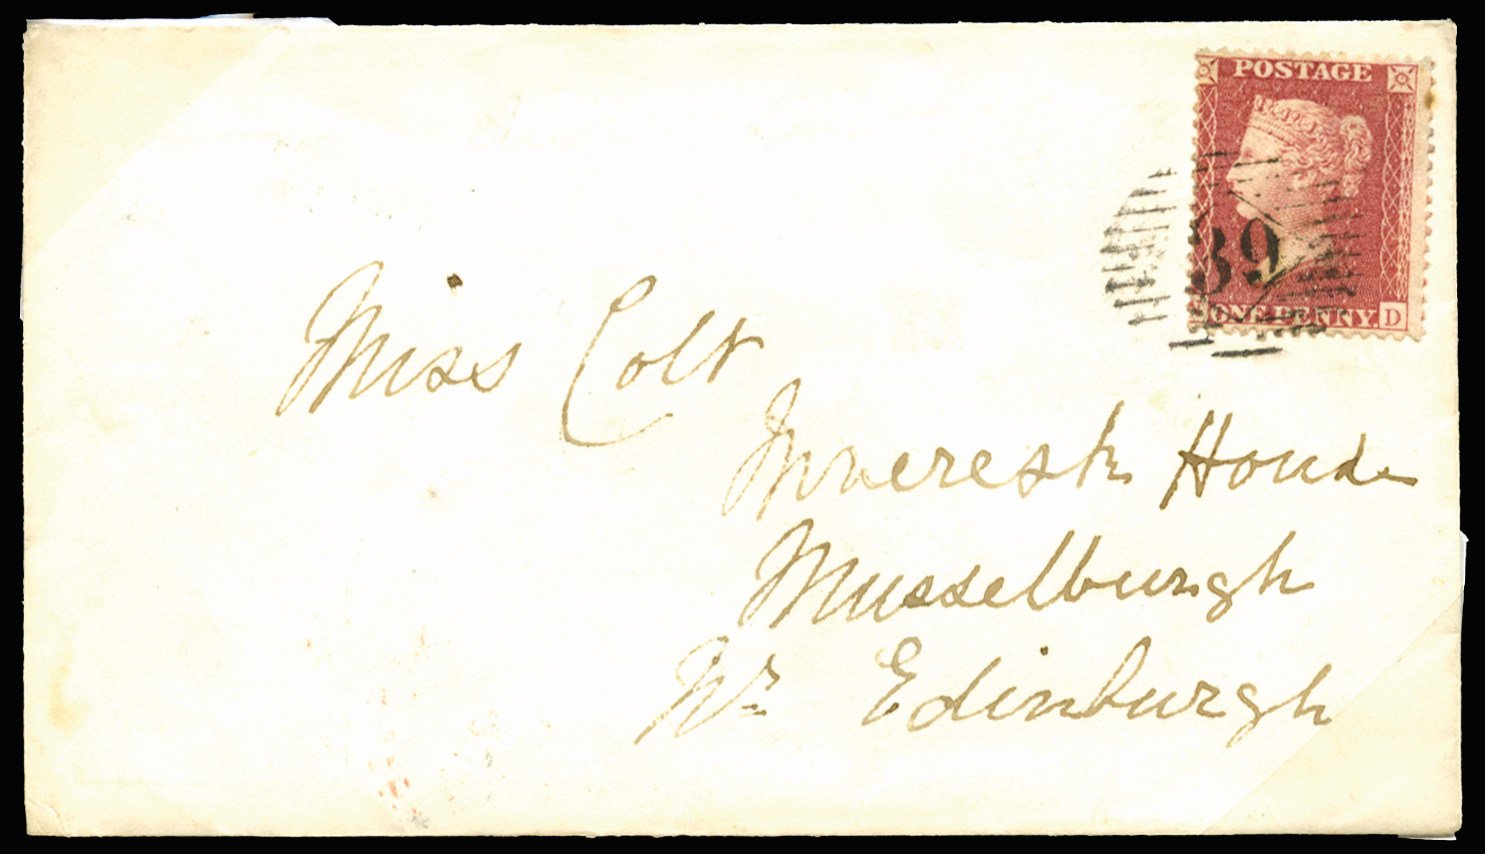 POSTAGE
39
ONE PENNY.
D
Miss Colt
Inveresk House
Musselburgh
Nr Edinburgh